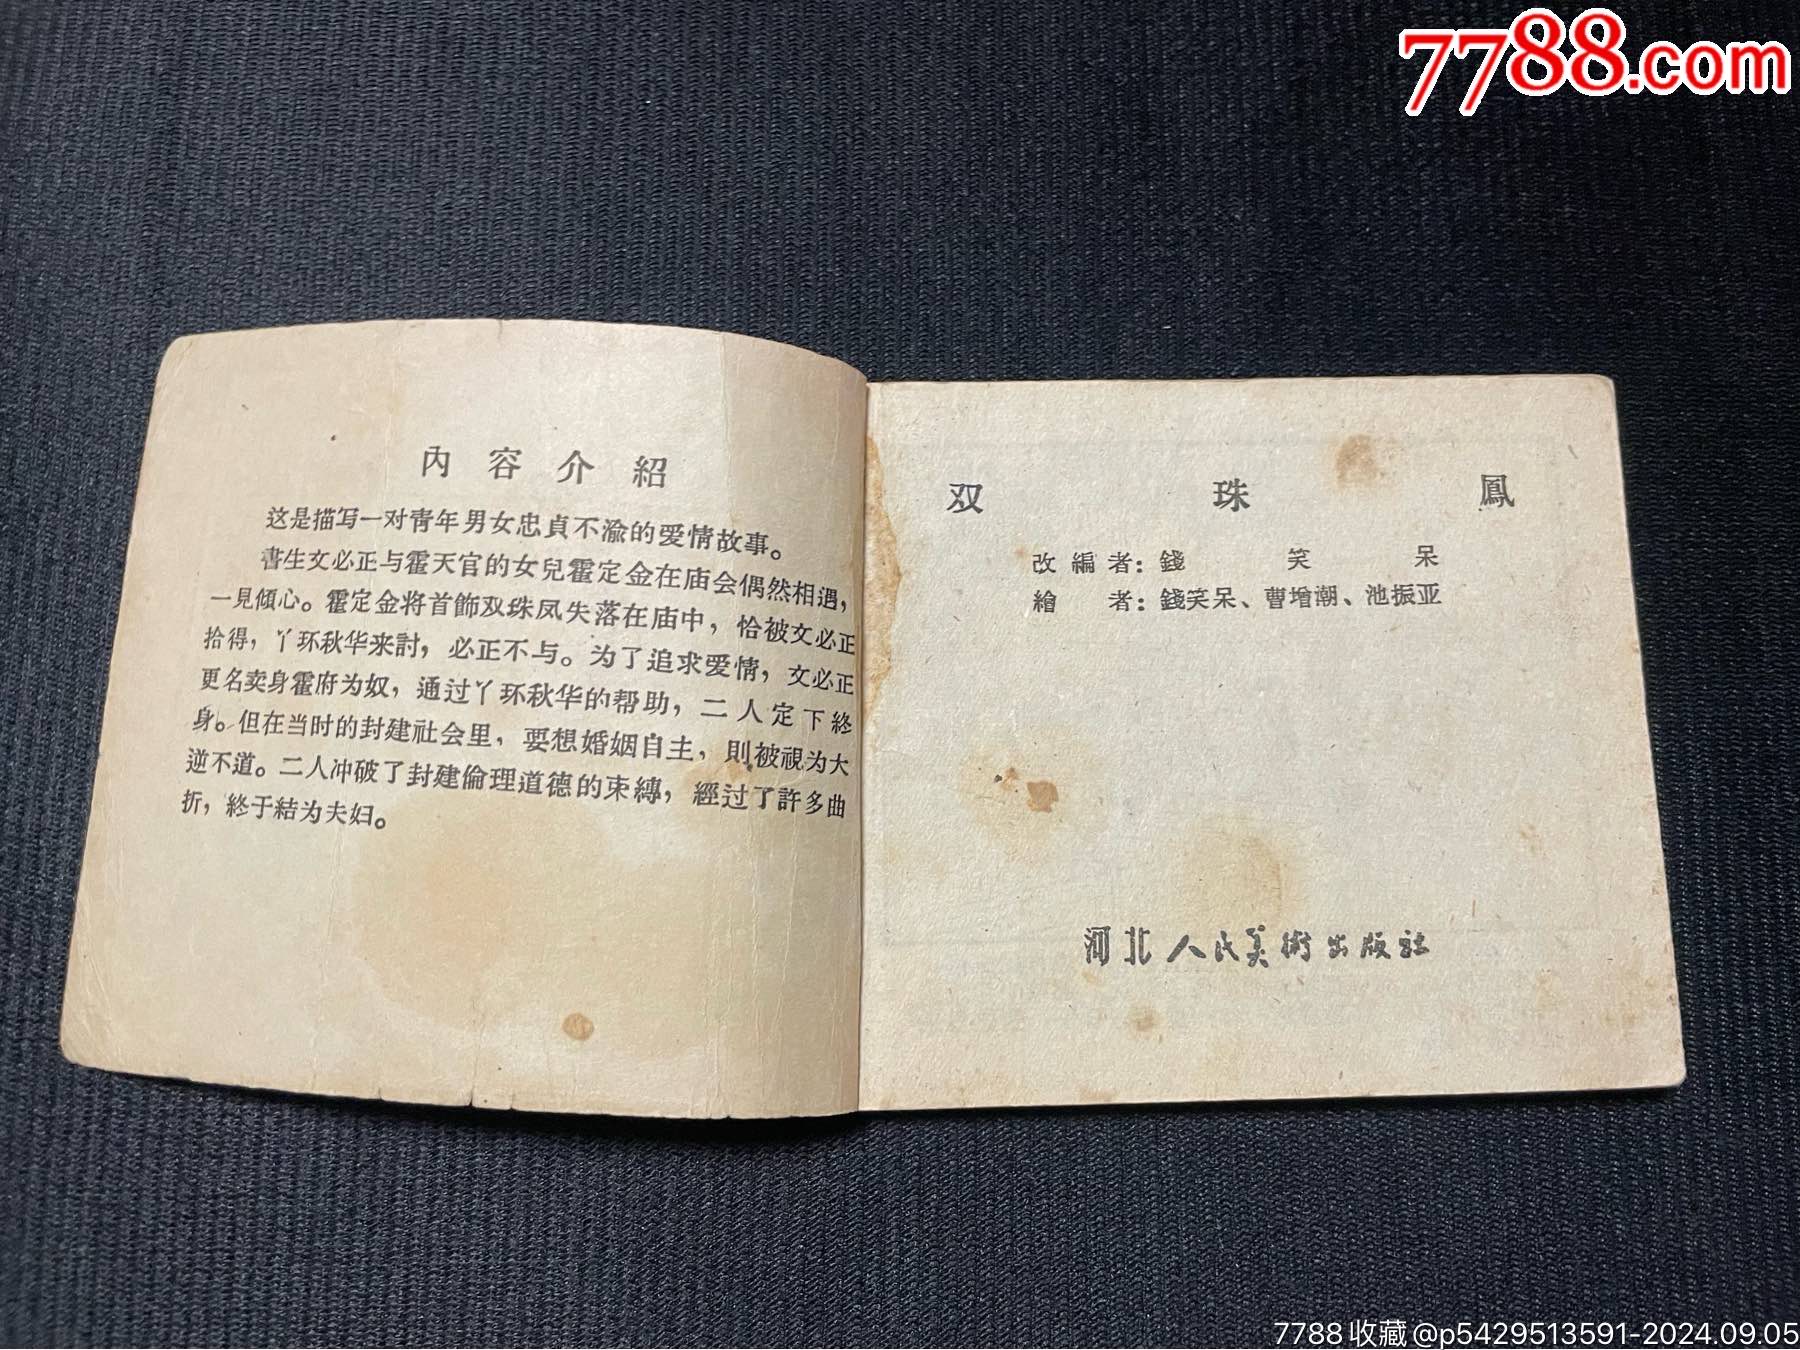 7788.com
內容介紹
这是描写一对青年男女忠貞不渝的爱情故事。
書生文必正与霍天官的女兒霍定金在庙会偶然相遇，
一見傾心。霍定金将首飾双珠凤失落在庙中，恰被文必正
拾得，丫环秋华来討，必正不与。为了追求爱情，文必正
更名卖身霍府为奴，通过丫环秋华的帮助，二人定下終
身。但在当时的封建社会里，要想婚姻自主，則被視为大
逆不道。二人冲破了封建倫理道德的束縛，經过了許多曲
折，終于結为夫妇。
双珠鳳
改編者：錢笑呆
繪者：錢笑呆、曹增潮、池振亚
河北人民美術出版社
7788收藏@p5429513591-2024.09.05